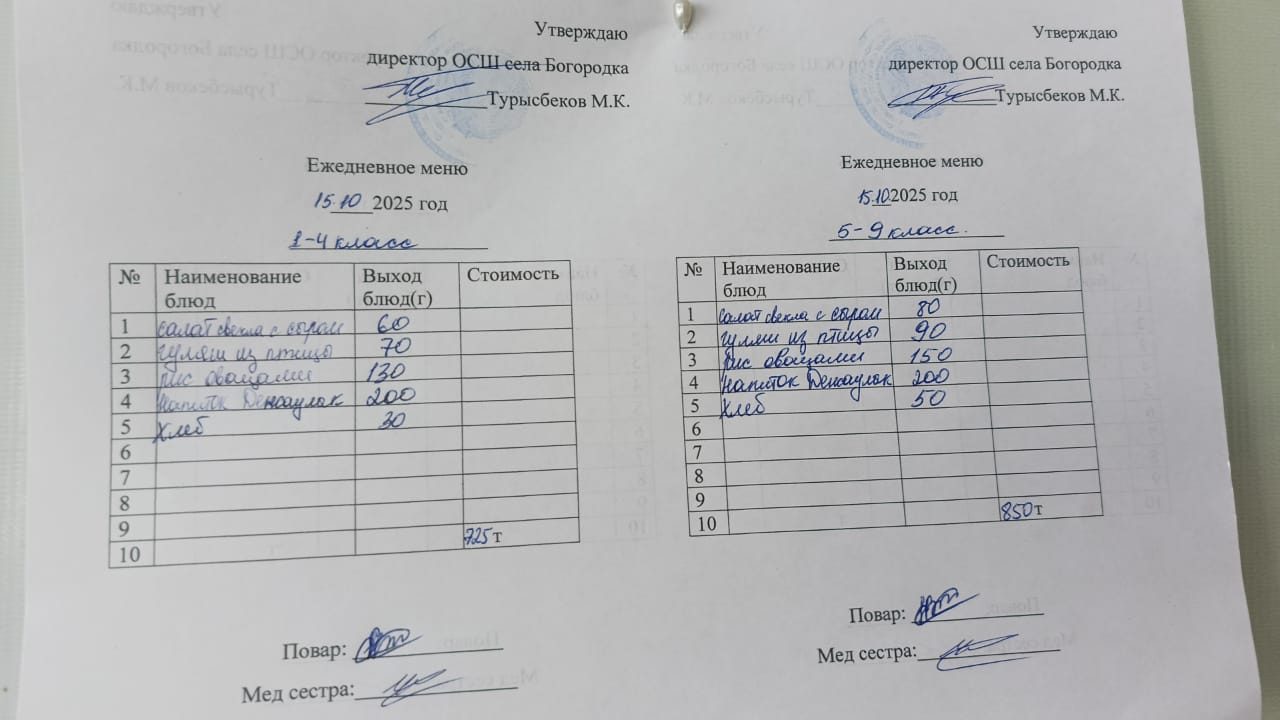 Утверждаю
директор ОСШ села Богородка
Турысбеков М.К.
Ежедневное меню
15.10 2025 год
1-4 класс
№ Наименование блюд Выход блюд(г) Стоимость
1 салат свекла с сыром 60
2 гуляш из птицы 70
3 рис овощами 130
4 напиток Денсаулык 200
5 хлеб 30
6
7
8
9 725 т
10
Повар:
Мед сестра:
Утверждаю
директор ОСШ села Богородка
Турысбеков М.К.
Ежедневное меню
15.10 2025 год
5-9 класс.
№ Наименование блюд Выход блюд(г) Стоимость
1 салат свекла с сыром 80
2 гуляш из птицы 90
3 рис овощами 150
4 напиток Денсаулык 200
5 хлеб 50
6
7
8
9
10 850 т
Повар:
Мед сестра: